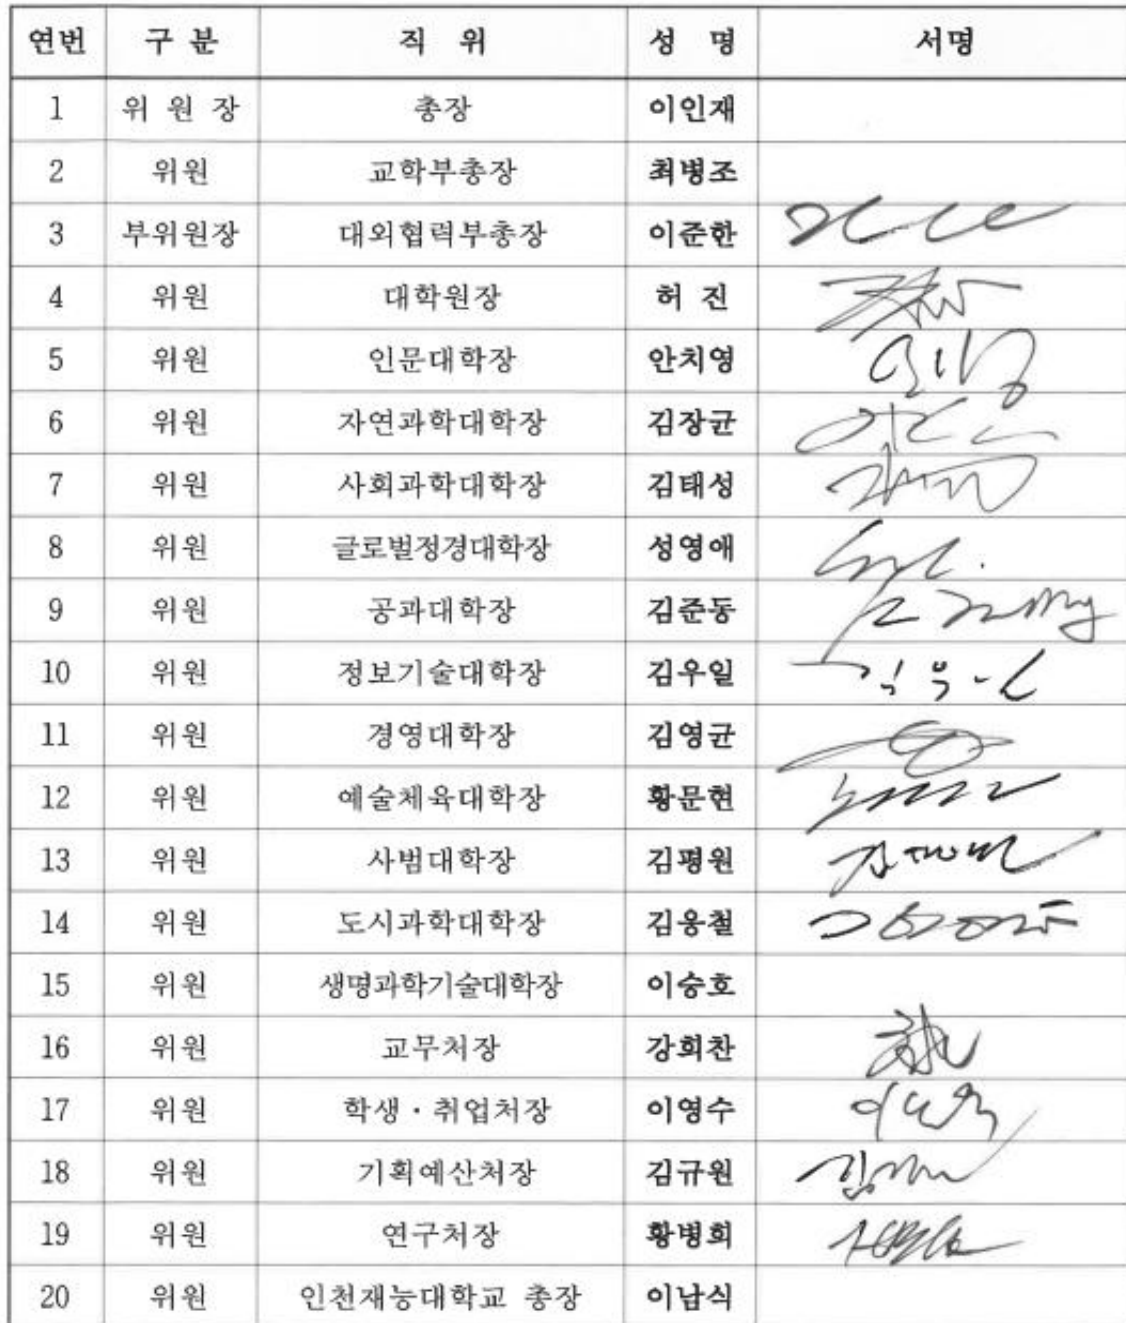 연번 구 분 직 위 성 명 서명
1 위 원 장 총장 이인재
2 위원 교학부총장 최병조
3 부위원장 대외협력부총장 이준한
4 위원 대학원장 허 진
5 위원 인문대학장 안치영
6 위원 자연과학대학장 김장균
7 위원 사회과학대학장 김태성
8 위원 글로벌정경대학장 성영애
9 위원 공과대학장 김준동
10 위원 정보기술대학장 김우일
11 위원 경영대학장 김영균
12 위원 예술체육대학장 황문현
13 위원 사범대학장 김평원
14 위원 도시과학대학장 김웅철
15 위원 생명과학기술대학장 이승호
16 위원 교무처장 강희찬
17 위원 학생·취업처장 이영수
18 위원 기획예산처장 김규원
19 위원 연구처장 황병희
20 위원 인천재능대학교 총장 이남식